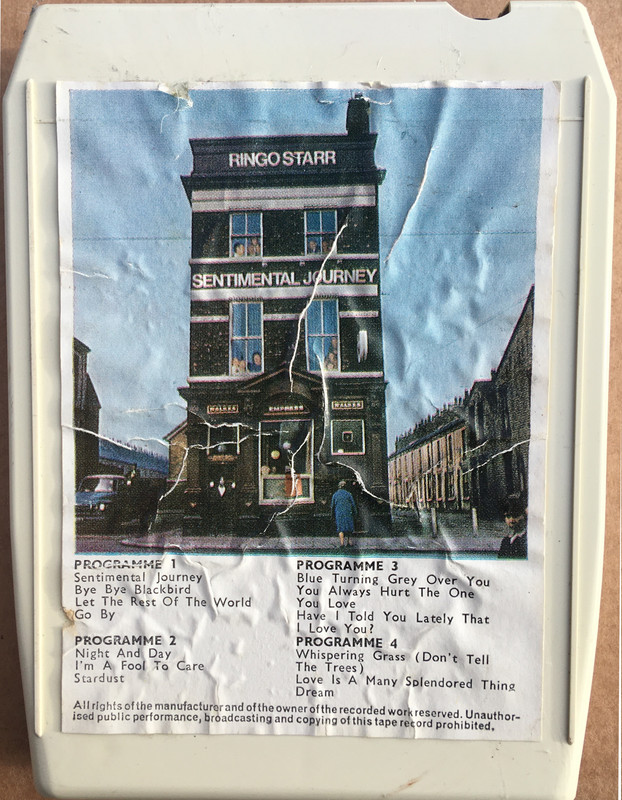 RINGO STARR
SENTIMENTAL JOURNEY
WALKER
EMPRESS
WALKER
PROGRAMME 1
Sentimental Journey
Bye Bye Blackbird
Let The Rest Of The World
Go By
PROGRAMME 2
Night And Day
I'm A Fool To Care
Stardust
PROGRAMME 3
Blue Turning Grey Over You
You Always Hurt The One
You Love
Have I Told You Lately That
I Love You?
PROGRAMME 4
Whispering Grass (Don't Tell
The Trees)
Love Is A Many Splendored Thing
Dream
All rights of the manufacturer and of the owner of the recorded work reserved. Unauthor-
ised public performance, broadcasting and copying of this tape record prohibited.